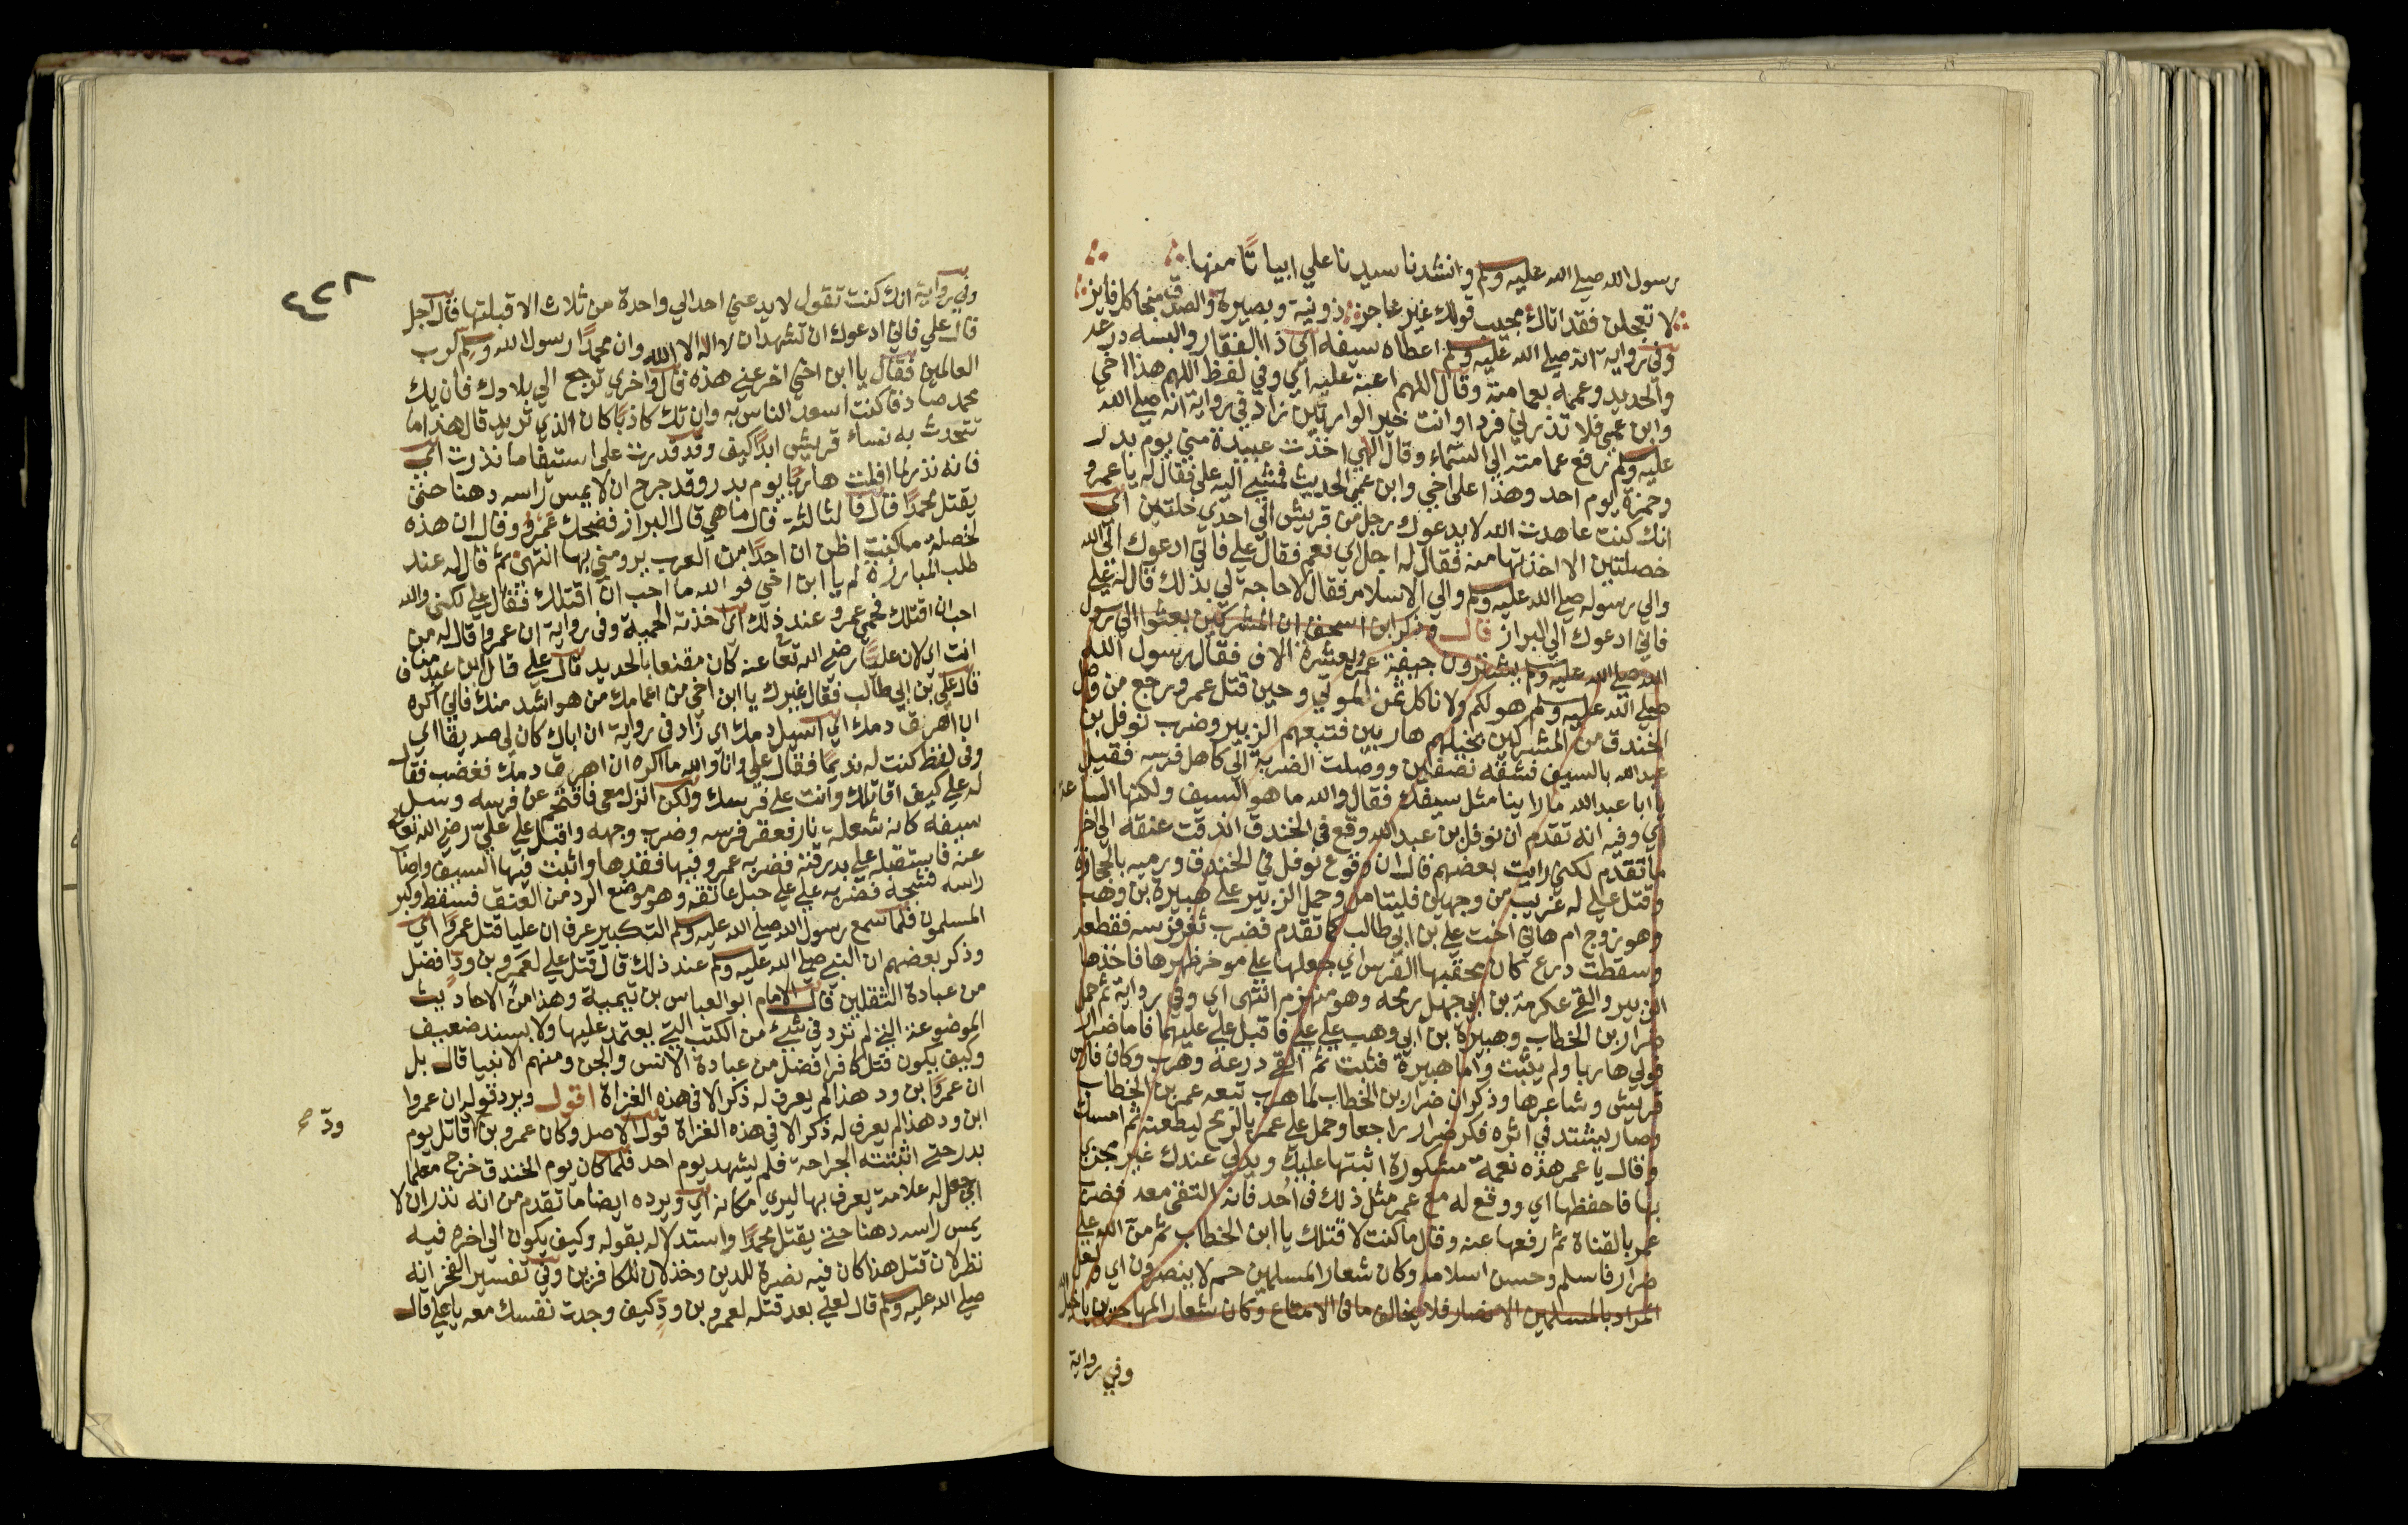 رسول الله صلي الله عليه وسلم وانشدنا سيدنا علي ابياتا منها
لا تعجلن فقد اتاك مجيب قولك غير عاجز ذو نية وبصيرة والصدق منجا كل فايز
وفي رواية انه صلي الله عليه وسلم اعطاه سيفه اي ذا الفقار والبسه درعه
والحديد وعممه بعمامته وقال اللهم اعنه عليه اي وفي لفظ اللهم هذا اخي
وابن عمي فلا تذرني فردا وانت خير الوارثين زاد في رواية انه صلي الله
عليه وسلم رفع عمامته الي السماء وقال الهي اخذت عبيدة مني يوم بدر
وحمزة يوم احد وهذا علي اخي وابن عمي الحديث فمشي اليه علي فقال له يا عمرو
انك كنت عاهدت الله لا يدعوك رجل من قريش الي احدي خلتين اي
خصلتين الا اخذتها منه فقال له اجل اي نعم فقال علي فاني ادعوك الي الله
والي رسوله صلي الله عليه وسلم والي الاسلام فقال لا حاجة لي بذلك قال له علي
فاني ادعوك الي البراز قال وذكر ابن اسحق ان المشركين بعثوا الي رسول
الله صلي الله عليه وسلم يشترون جيفة عمرو بعشرة الاف فقال رسول الله
صلي الله عليه وسلم هو لكم ولا ناكل ثمن الموتي وحين قتل عمرو رجع من وصل
الخندق من المشركين بخيلهم هاربين فتبعهم الزبير وضرب نوفل بن
عبد الله بالسيف فشقه نصفين ووصلت الضربة الي كاهل فرسه فقيل
يا ابا عبد الله ما راينا مثل سيفك فقال والله ما هو السيف ولكنها الساعد
اي وفيه انه تقدم ان نوفل بن عبد الله وقع في الخندق اندقت عنقه الي اخر
ما تقدم لكني رايت بعضهم قال ان وقوع نوفل في الخندق ورميه بالحجارة
وقتل علي له غريب من وجهين فليتامل وحمل الزبير علي هبيرة بن وهب
وهو زوج ام هاني اخت علي بن ابي طالب كما تقدم فضرب ثغر فرسه فقطعه
وسقطت درع كان محقبها الفرس اي جعلها علي موخر ظهرها فاخذها
الزبير والقي عكرمة بن ابي جهل رمحه وهو منهزم انتهي اي وفي رواية ثم حمل
ضرار بن الخطاب وهبيرة بن ابي وهب علي علي فاقبل علي عليهما فاما ضرار
فولي هاربا ولم يثبت واما هبيرة فثبت ثم القي درعه وهرب وكان فارس
قريش وشاعرها وذكر ان ضرار بن الخطاب لما هرب تبعه عمر بن الخطاب
وصار يشتد في اثره فكر ضرار راجعا وحمل علي عمر بالرمح ليطعنه ثم امسك
وقال يا عمر هذه نعمة مشكورة اثبتها عليك ويد لي عندك غير مجزي
بها فاحفظها اي ووقع له مع عمر مثل ذلك في احد فانه التقي معه فضرب
عمر بالقناة ثم رفعها عنه وقال ما كنت لاقتلك يا ابن الخطاب ثم من الله علي
ضرار فاسلم وحسن اسلامه وكان شعار المسلمين حم لا ينصرون اي ولعل
المراد بالمسلمين الانصار فلا يخالف ما في الامتاع وكان شعار المهاجرين يا خيل الله
وفي رواية
٤٢٨
وفي رواية انك كنت تقول لا يدعني احد الي واحدة من ثلاث الا قبلتها قال اجل
قال علي فاني ادعوك ان تشهد ان لا اله الا الله وان محمدا رسول الله وتسلم لرب
العالمين فقال يا ابن اخي اخر عني هذه قال واخري ترجع الي بلادك فان يك
محمد صادقا كنت اسعد الناس به وان تك كاذبا كان الذي تريد قال هذا ما
تتحدث به نساء قريش ابدا كيف وقد قدرت علي استيفا ما نذرت اي
فانه نذر لما افلت هاربا يوم بدر وقد جرح ان لا يمس راسه دهنا حتي
يقتل محمدا قال فالثالثة قال ما هي قال البراز فضحك عمرو وقال ان هذه
لخصلة ما كنت اظن ان احدا من العرب يرومني بها انتهي ثم قال له عند
طلب المبارزة لم يا ابن اخي فو الله ما احب ان اقتلك فقال علي لكني والله
احب ان اقتلك فحمي عمرو عند ذلك اي اخذته الحمية وفي رواية ان عمروا قال له من
انت اي لان عليا رضي الله تعا عنه كان مقنعا بالحديد قال علي قال ابن عبد مناف
قال علي بن ابي طالب فقال غيرك يا ابن اخي من اعمامك من هو اشد منك فاني اكره
ان اهرق دمك اي اسيل دمك اي زاد في رواية ان اباك كان لي صديقا اي
وفي لفظ كنت له نديما فقال علي وانا والله ما اكره ان اهرق دمك فغضب فقال
له علي كيف اقاتلك وانت علي فرسك ولكن انزل معي فاقتحم عن فرسه وسل
سيفه كانه شعلة نار فعقر فرسه وضرب وجهه واقبل علي علي رضي الله تعالي
عنه فاستقبله علي بدرقته فضربه عمرو فيها فقدها واثبت فيها السيف واصاب
راسه فشجه فضربه علي علي حبل عاتقه وهو موضع الردا من العنق فسقط وكبر
المسلمون فلما سمع رسول الله صلي الله عليه وسلم التكبير عرف ان عليا قتل عمروا اي
وذكر بعضهم ان النبي صلي الله عليه وسلم عند ذلك قال قتل علي لعمرو بن ود افضل
من عبادة الثقلين قال الامام ابو العباس بن تيمية وهذا من الاحاديث
الموضوعة التي لم ترد في شيء من الكتب التي يعتمد عليها ولا بسند ضعيف
وكيف يكون قتل كافرا افضل من عبادة الانس والجن ومنهم الانبيا قال بل
ان عمرو بن ود هذا لم يعرف له ذكر الا في هذه الغزاة اقول ويرد قوله ان عمروا
ابن ود هذا لم يعرف له ذكر الا في هذه الغزاة قول الاصل وكان عمرو بن قاتل يوم
ود صح
بدر حتي اثبتته الجراحة فلم يشهد يوم احد فلما كان يوم الخندق خرج معلما
اي جعل له علامة يعرف بها ليري مكانه اي ويرده ايضا ما تقدم من انه نذر ان لا
يمس راسه دهنا حتي يقتل محمدا واستدلاله بقوله وكيف يكون الي اخره فيه
نظر لان قتل هذا كان فيه نصرة للدين وخذلان للكافرين وفي تفسير الفخر انه
صلي الله عليه وسلم قال لعلي بعد قتله لعمرو بن ود كيف وجدت نفسك معه يا علي قال